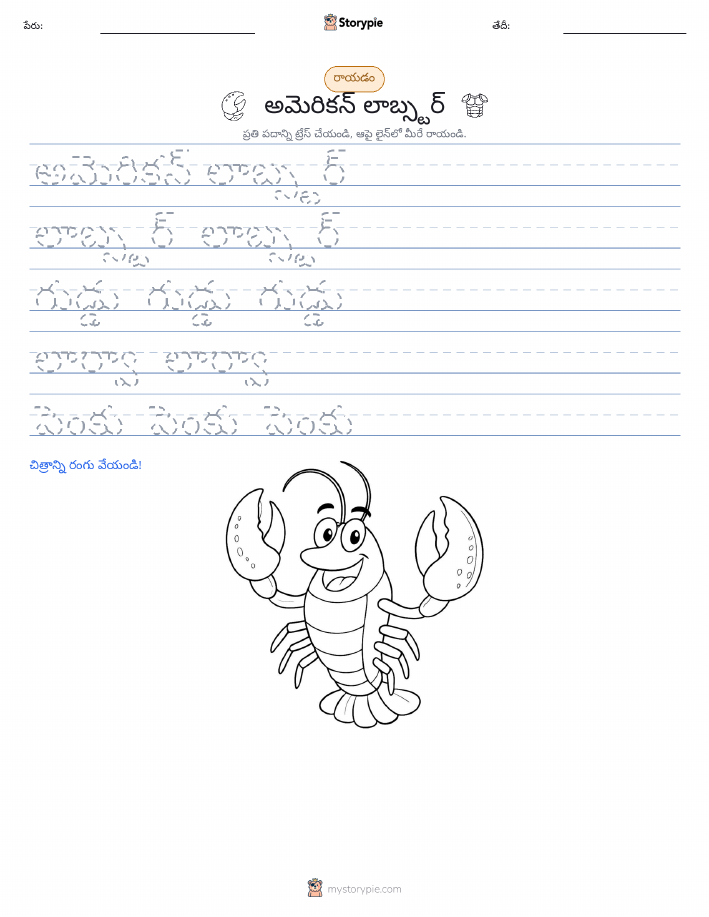 పేరు:
Storypie
తేదీ:
రాయడం
అమెరికన్ లాబ్స్టర్
ప్రతి పదాన్ని ట్రేస్ చేయండి, ఆపై లైన్‌లో మీరే రాయండి.
అమెరికన్ లాబ్స్టర్
లాబ్స్టర్ లాబ్స్టర్
గుడ్డు గుడ్డు గుడ్డు
లార్వా లార్వా
పెంకు పెంకు పెంకు
చిత్రాన్ని రంగు వేయండి!
mystorypie.com